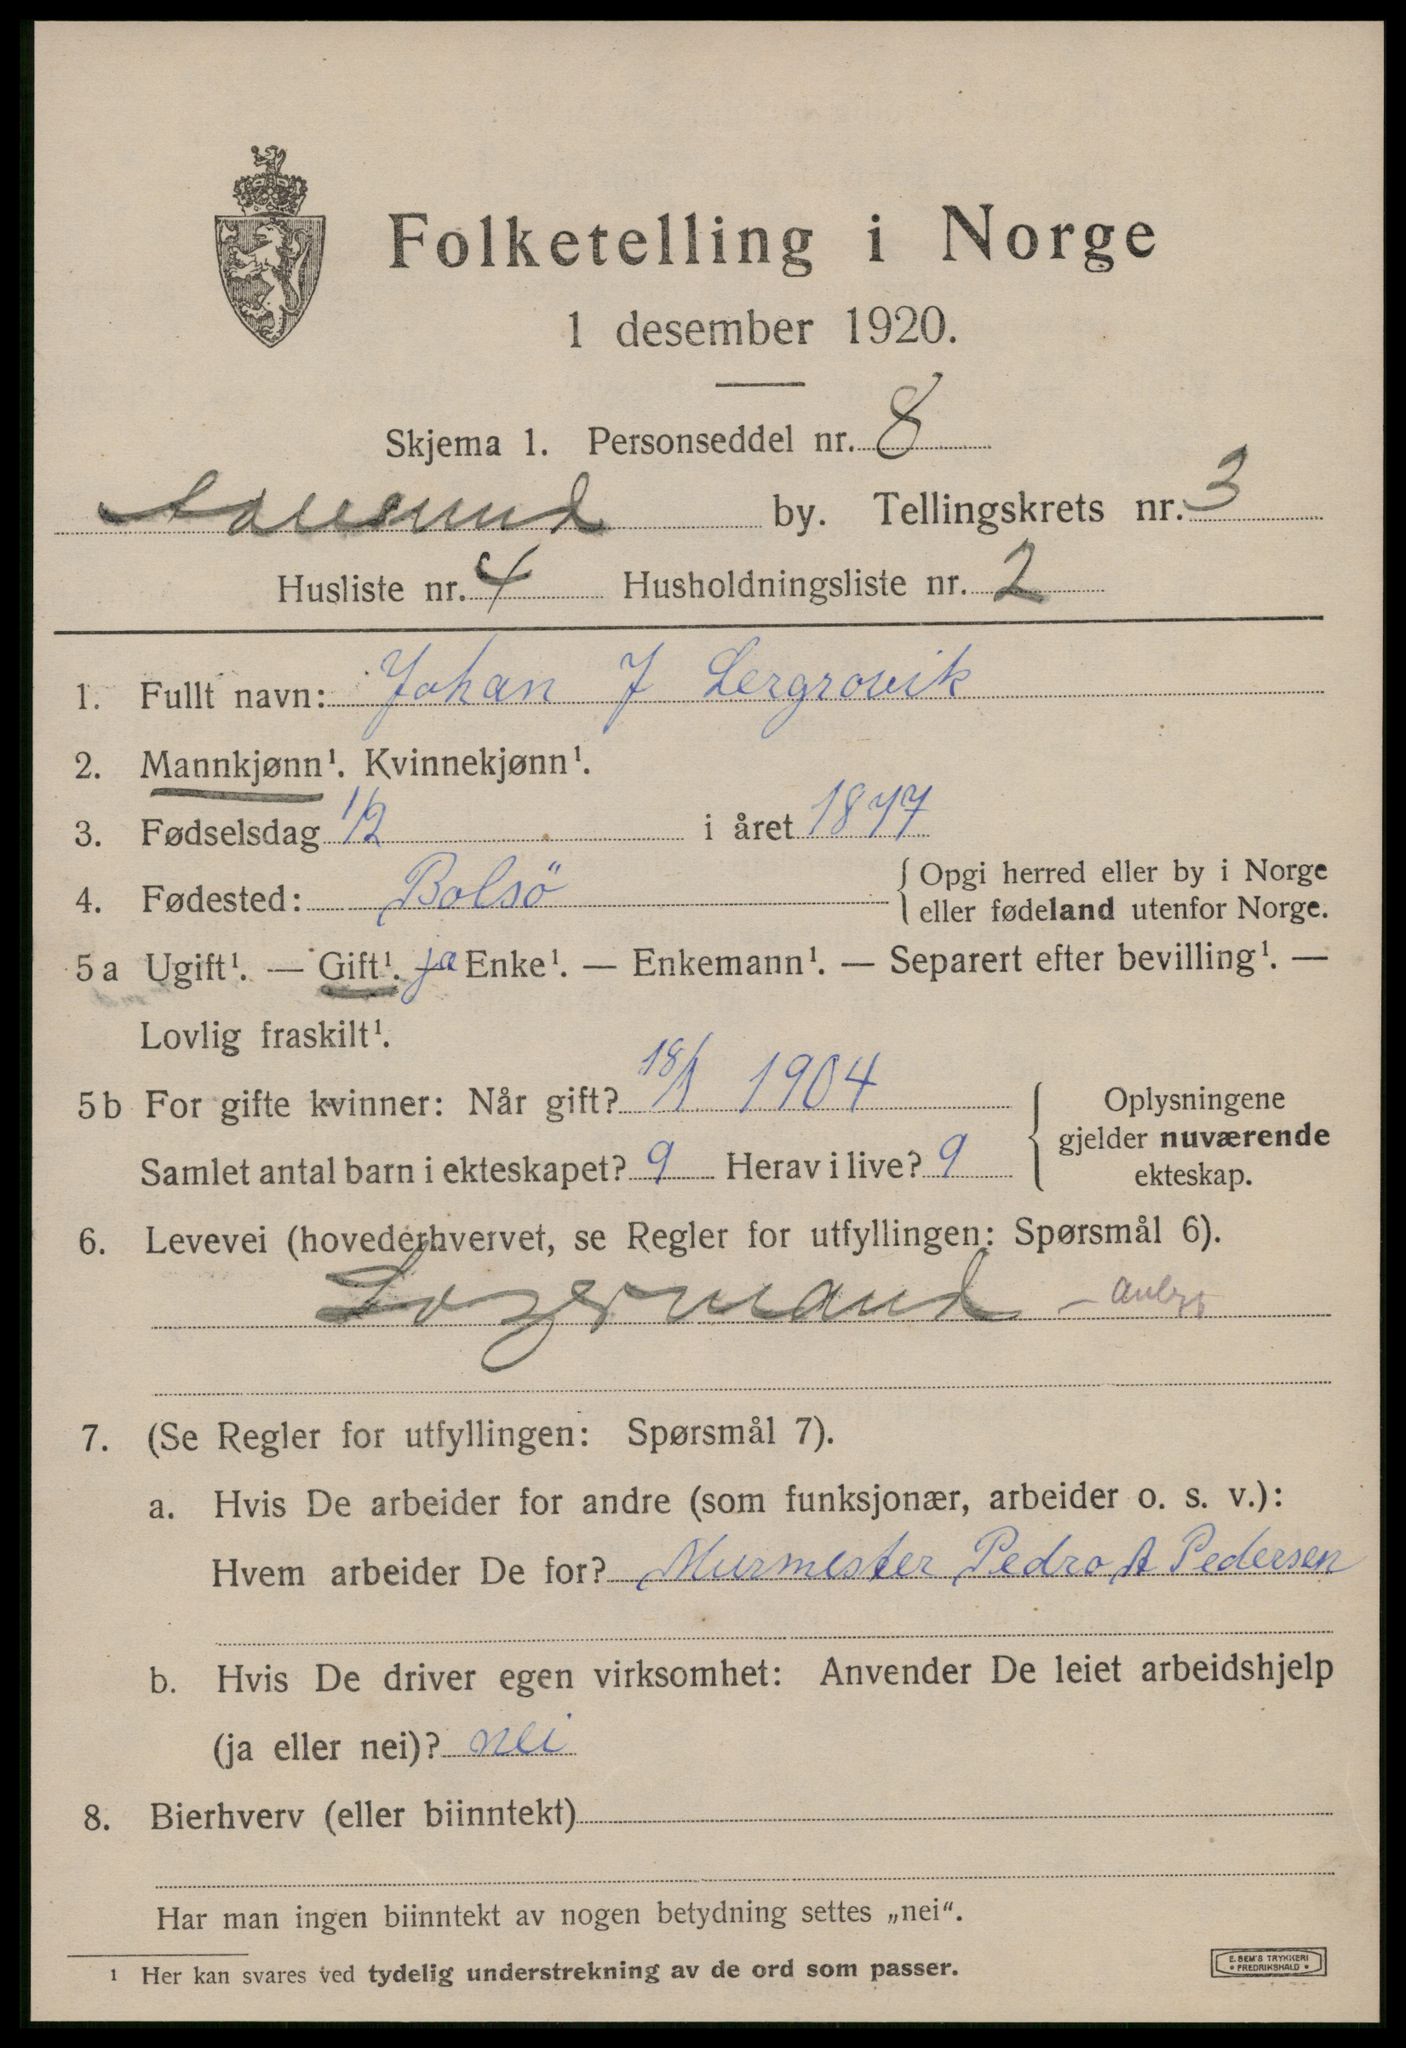 Folketelling i Norge
1 desember 1920.
Skjema 1. Personseddel nr. 8
Aalesund by. Tellingskrets nr. 3
Husliste nr. 4 Husholdningsliste nr. 2
1. Fullt navn: Johan J Lergrovik
2. Mannkjønn¹. Kvinnekjønn¹.
3. Fødselsdag 1/2 i året 1877
4. Fødested: Bolsö { Opgi herred eller by i Norge
eller fødeland utenfor Norge.
5 a Ugift¹. — Gift¹. ja Enke¹. — Enkemann¹. — Separert efter bevilling¹. —
Lovlig fraskilt¹.
5 b For gifte kvinner: Når gift? 18/1 1904
Samlet antal barn i ekteskapet? 9 Herav i live? 9
{ Oplysningene
gjelder nuværende
ekteskap.
6. Levevei (hovederhvervet, se Regler for utfyllingen: Spørsmål 6).
Lagermand –
7. (Se Regler for utfyllingen: Spørsmål 7).
a. Hvis De arbeider for andre (som funksjonær, arbeider o. s. v.):
Hvem arbeider De for? Murmester Pedro A Pedersen
b. Hvis De driver egen virksomhet: Anvender De leiet arbeidshjelp
(ja eller nei)? nei
8. Bierhverv (eller biinntekt)
Har man ingen biinntekt av nogen betydning settes „nei“.
¹ Her kan svares ved tydelig understrekning av de ord som passer.
E. SEM'S TRYKKERI
• FREDRIKSHALD •